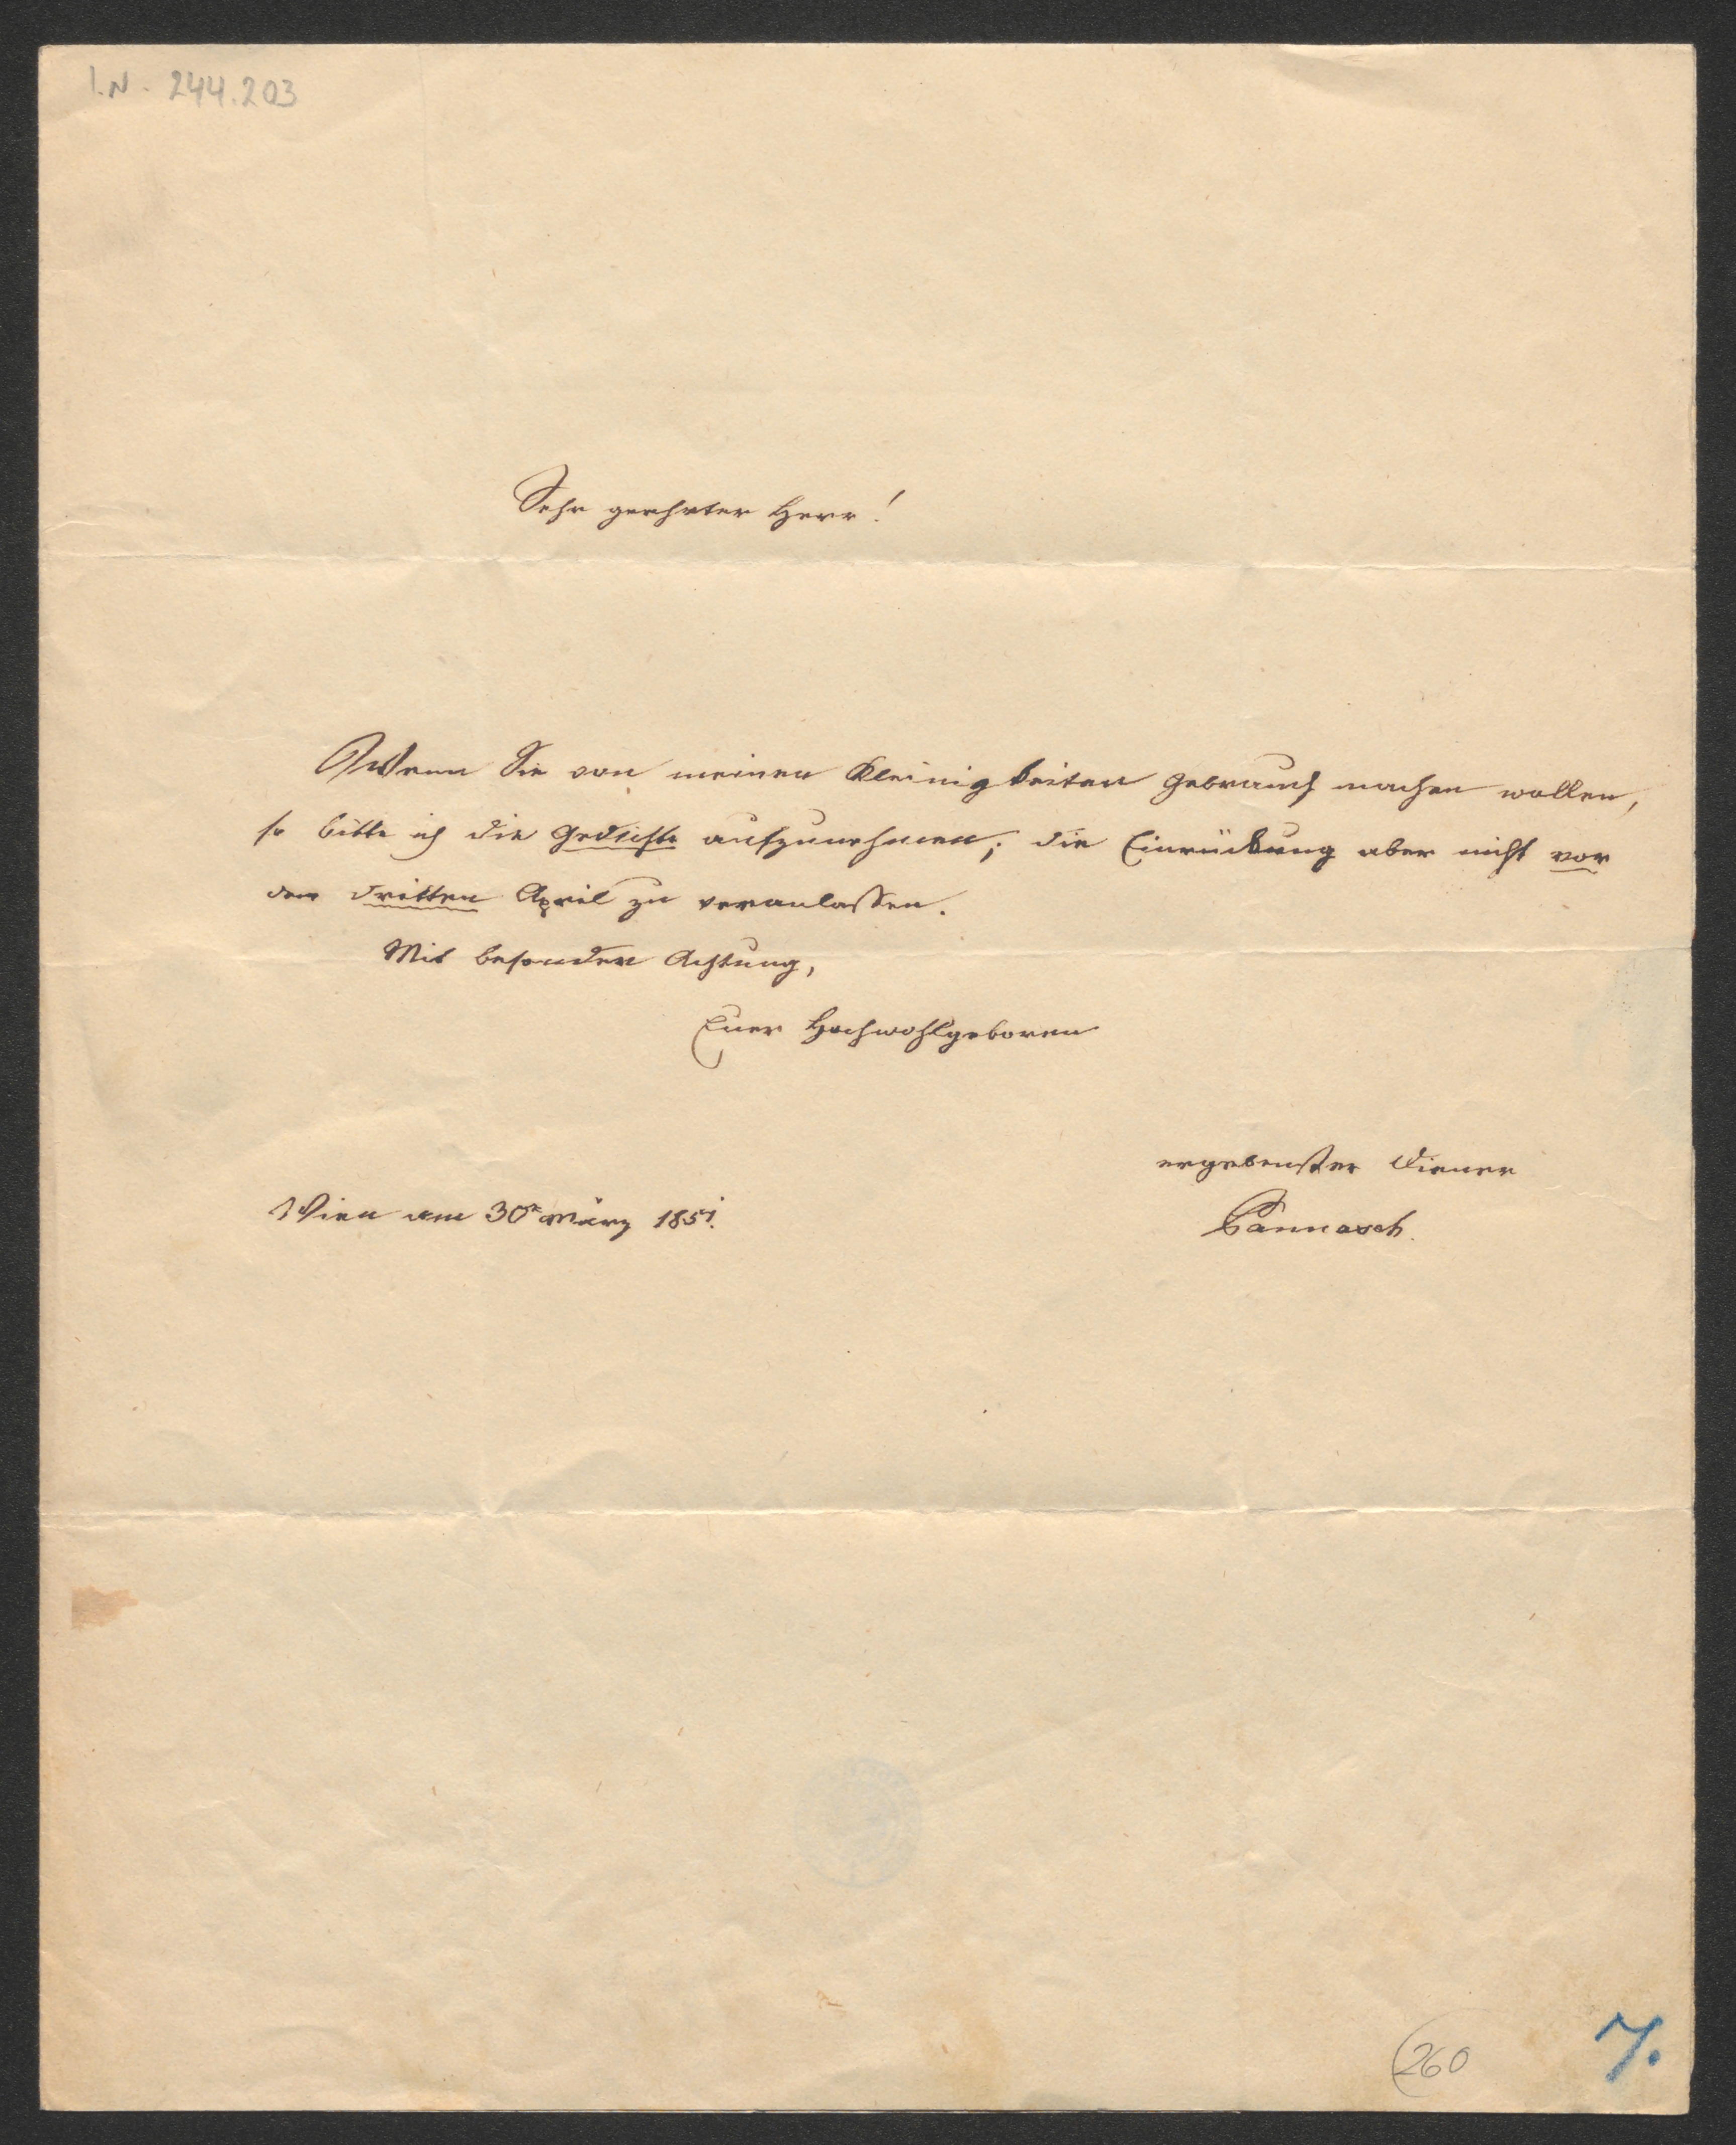 I.N. 244.203
Sehr geehrter Herr!
Wenn Sie von meinen Kleinigkeiten Gebrauch machen wollen,
so bitte ich die Gedichte aufzunehmen; die Einrückung aber nicht vor
dem dritten April zu veranlassen.
Mit besonderer Achtung,
Euer Hochwohlgeboren
ergebenster Diener
Wien am 30n März 1851.
Pannasch.
260
7.